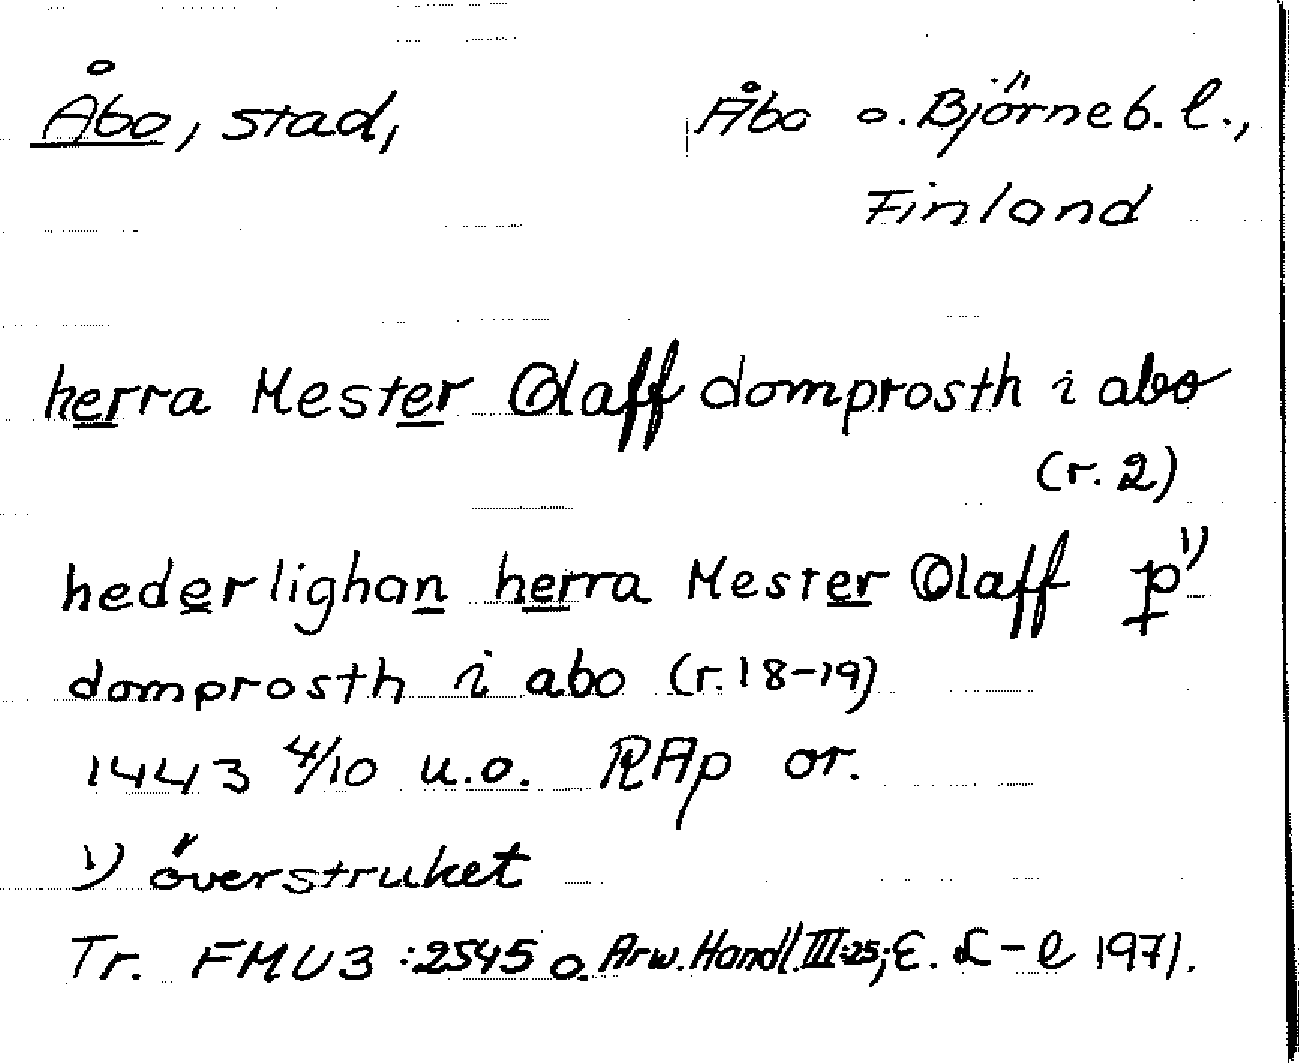 Åbo, stad, Åbo o. Björneb. l.,
Finland
herra Mester Olaff domprosth i abo
(r. 2)
hederlighan herra Mester Olaff p 1)
domprosth i abo (r. 18-19)
1443 4/10 u.o. RAp or.
1) överstruket
Tr. FMU 3:2545 o. Arw. Handl. III:25; E. L-l 1971.